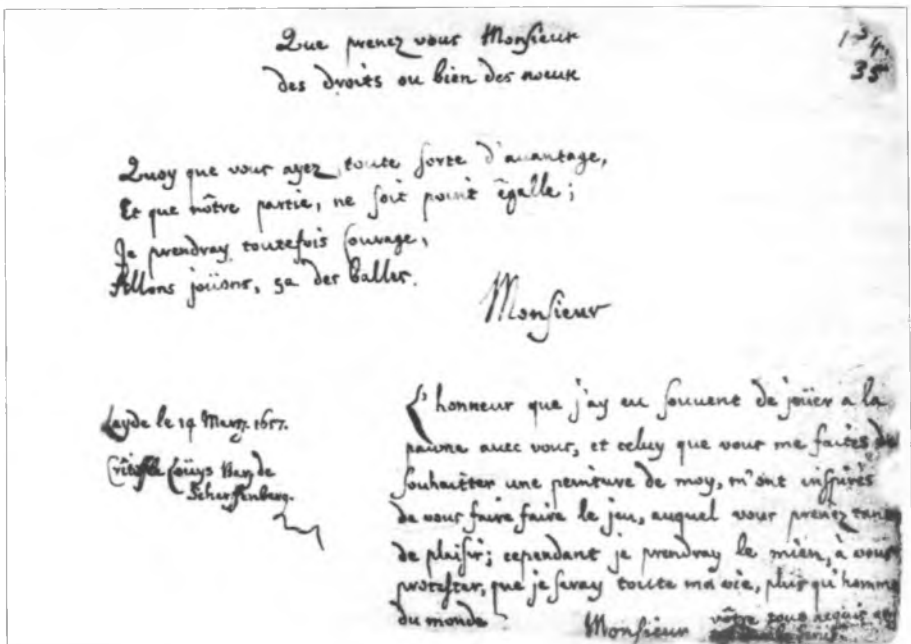 Que prenez vous Monsieur
des droits ou bien des noeux
134.
35
Quoy que vous ayez, toute sorte d'auantage,
Et que nôtre partie, ne soit point êgalle;
Je prendray toutefois Courage,
Allons joüons, ça des balles.
Monsieur
Leyde le 14 Mars. 1657.
Loüys Bar. de
Scherffenberg.
L'honneur que j'ay eu souuent de joüer a la
paume auec vous, et celuy que vous me faites de
souhaitter une peinture de moy, m'ont inspirés
de vous faire faire le jeu, auquel vous prenez tant
de plaisir; cependant je prendray le mien, à vous
protester, que je seray toute ma vie, plus qu'homme
du monde
Monsieur vôtre tous acquis